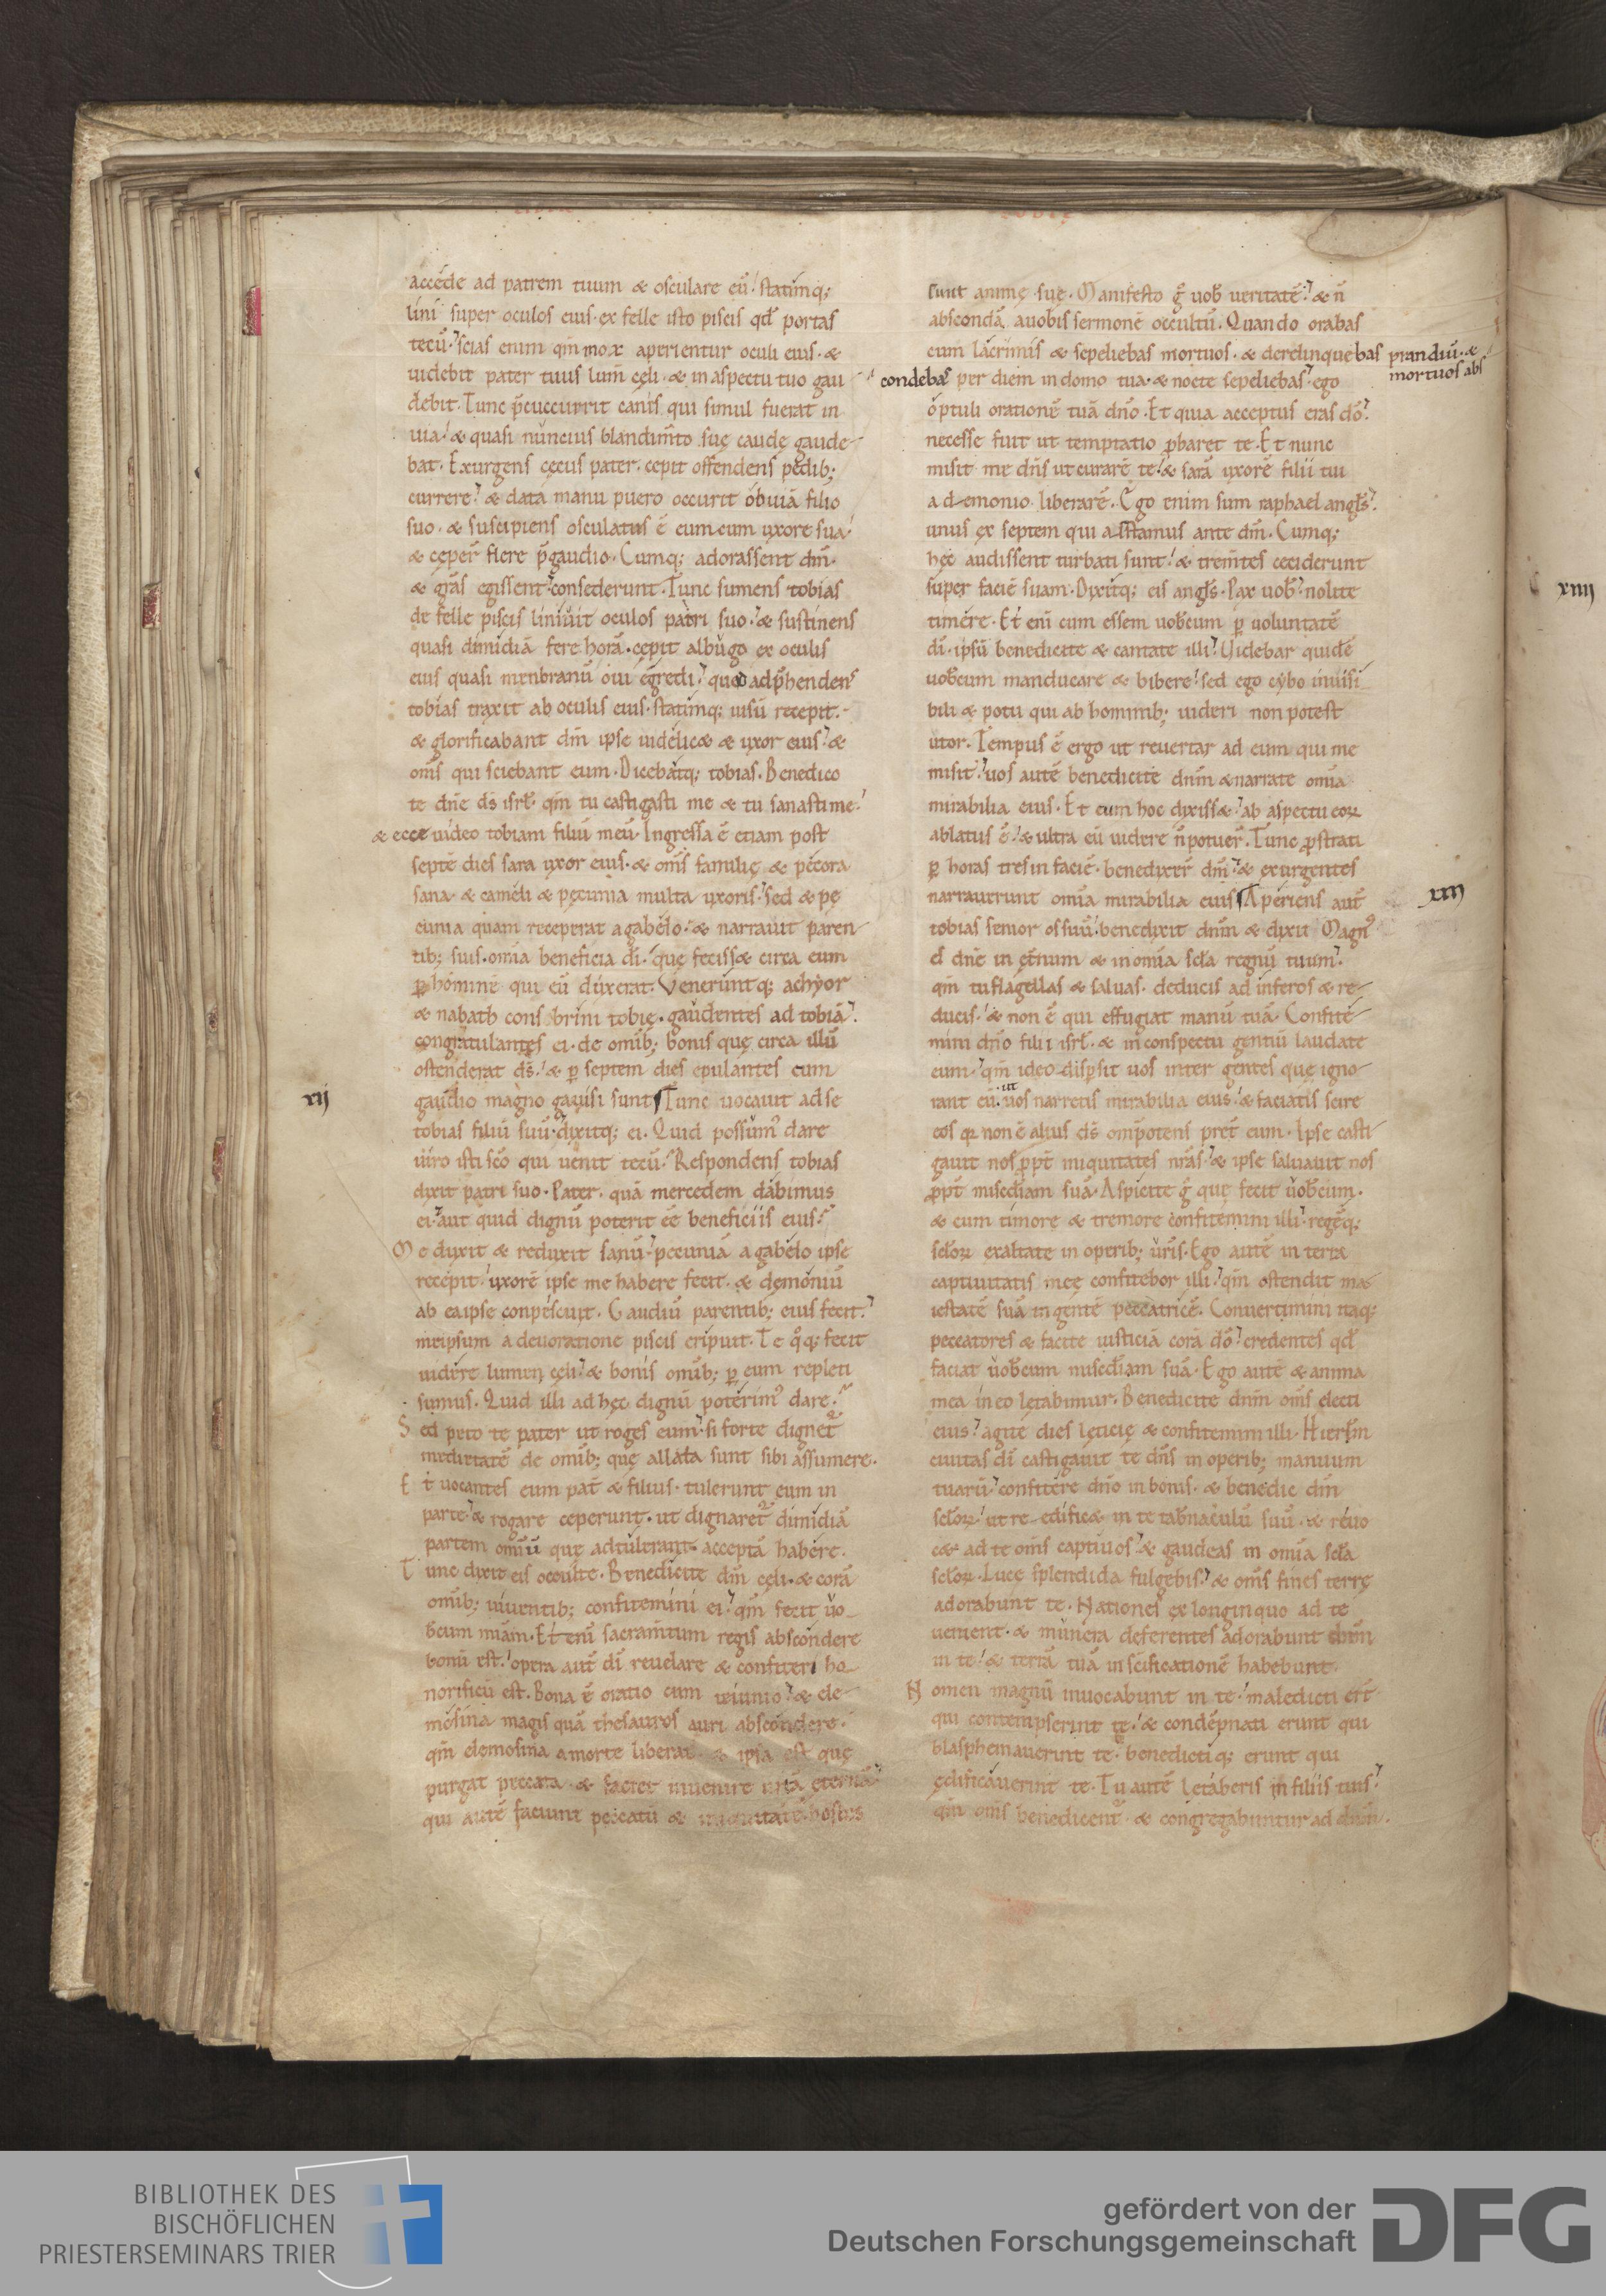 accede ad patrem tuum & osculare eū. statimq;
lini super oculos eius ex felle isto piscis qd̄ portas
tecū. scias enim qm̄ mox aperientur oculi eius. &
uidebit pater tuus lum̄ cęli. & in aspectu tuo gau
debit. Tunc p̄cucurrit canis qui simul fuerat in
uia. & quasi nuncius blandim̄to suę caude gaude-
bat. Exurgens cęcus pater. cepit offendens pedib;
currere. & data manu puero occurit obuiā filio
suo. & suscipiens osculatus ē eum cum uxore sua.
& cęper̄ flere p̄ gaudio. Cumq; adorassent dm̄.
& grās egissent. consederunt. Tunc sumens tobias
de felle piscis liniuit oculos patri suo. & sustinens
quasi dimidiā fere horā. cępit albugo ex oculis
eius quasi menbranū oui egredi. quod adp̄hendens
tobias traxit ab oculis eius. statimq; uisū recepit.
& glorificabant dm̄ ipse uidelic& & uxor eius. &
om̄s qui sciebant eum. Dicebatq; tobias. Benedico
te dn̄e ds̄ isrł. qm̄ tu castigasti me & tu sanasti me.
& ecce uideo tobiam filiū meū. Ingressa ē etiam post
septē dies sara uxor eius. & om̄s familię & pecora
sana. & cameli & pecunia multa uxoris. sed & pe
cunia quam receperat a gabelo. & narrauit paren
tib; suis. om̄ia beneficia dī. quę feciss& circa eum
p hominē qui eū duxerat. Venerunt q; achyor
& nabath consobrini tobię. gaudentes ad tobiā.
congratulantes ei. de omīb; bonis quę circa illū
ostenderat ds̄. & p septem dies epulantes cum
xij
gaudio magno gauisi sunt Tunc uocauit ad se
tobias filiū suū. dixitq; ei. Quid possum' dare
uiro isti scō qui uenit tecū. Respondens tobias
dixit patri suo. Pater. quā mercedem dabimus
ei. aut quid dignū poterit ēē beneficiis eius.
Me duxit & reduxit sanū. pecuniā a gabelo ipse
recepit. uxorē ipse me habere fecit. & demoniū
ab ea ipse conpescuit. Gaudiū parentib; eius fecit.
meipsum a deuoratione piscis eripuit. Te q̊q; fecit
uidere lumen cęli. & bonis omīb; p eum repleti
sumus. Quid illi ad hęc dignū poterim' dare.
Sed peto te pater ut roges eum. si forte dignet̄
medietatē de omīb; quę allata sunt sibi assumere.
Et uocantes eum pat̄ & filius. tulerunt eum in
parte. & rogare ceperunt. ut dignaret̄ dimidiā
partem omīū quę adtulerant acceptā habere.
Tunc dixit eis occulte. Benedicite dm̄ cęli. & corā
omīb; uiuentib; confitemini ei. qm̄ fecit uo
bcum miām. Et enī sacram̄tum regis abscondere
bonū est. opera aut̄ dī reuelare & confiteri ho
norificū est. Bona ē oratio cum ieiunio. & ele
mosina magis quā thesauros auri abscondere.
qm̄ elemosina a morte liberat & ipsa est quę
purgat peccata. & faciet inuenire uitā eternā
qui autē faciunt peccatū & iniquitatē. hostes
sunt animę suę. Manifesto g̊ uob̄ ueritatē. & n̄
abscondā a uobis sermonē occultū. Quando orabas
cum lacrimis & sepeliebas mortuos. & derelinquebas prandiū. &
mortuos abs
condebas per diem in domo tua. & nocte sepeliebas. ego
optuli orationē tuā dn̄o. Et quia acceptus eras dō.
necesse fuit ut temptatio p̄baret te. Et nunc
misit me dn̄s ut curarē te. & sarā uxorē filii tui
a demonio liberarē. Ego enim sum raphael angl̄s.
unus ex septem qui astamus ante dm̄. Cumq;
hęc audissent turbati sunt. & trem̄tes ceciderunt
super faciē suam. Dixitq; eis angl̄s. Pax uob̄. nolite
timere. Et enī cum essem uob̄cum p uoluntatē
dī. ipsū benedicite & cantate illi. Uidebar quidē
uob̄cum manducare & bibere. sed ego cybo inuisi
bili & potu qui ab hominib; uideri non potest
utor. Tempus ē ergo ut reuertar ad eum qui me
misit. uos autē benedicite dnm̄ & narrate om̄ia
mirabilia eius. Et cum hoc dixiss&. ab aspectu eoꝝ
ablatus ē. & ultra eū uidere n̄ potuer̄. Tunc p̄strati
p horas tres in faciē. benedixer̄ dm̄. & exurgentes
narrauerunt om̄ia mirabilia eius Aperiens aut̄
xiii
tobias senior os suū. benedixit dnm̄ & dixit Magn'
es dn̄e in et̄num & in om̄ia scła regnū tuum.
qm̄ tu flagellas & saluas. deducis ad inferos & re-
ducis. & non ē qui effugiat manū tuā. Confite
mini dn̄o filii isrł. & in conspectu gentiū laudate
eum. qm̄ ideo dispsit uos inter gentes quę igno-
rant eū. ut uos narretis mirabilia eius. & faciatis scire
eos qꝛ non ē alius ds̄ omp̄otens pret̄ eum. Ipse casti
gauit nos p̄pt̄ iniquitates nrās. & ipse saluauit nos
p̄pt̄ misedīam suā. Aspicite g̊ quę fecit uob̄cum.
& cum timore & tremore confitemini illi. regēq;
scłoꝝ exaltate in operib; ur̄is. Ego autē in terra
captiuitatis męę confitebor illi. qm̄ ostendit ma
iestatē suā in gentē peccatricē. Conuertimini itaq;
peccatores & facite iusticiā corā dō. credentes qd̄
faciat uob̄cum misedīam suā. Ego autē & anima
mea in eo letabimur. Benedicite dnm̄ om̄s electi
eius. agite dies lęticię & confitemini illi. Hierłm
ciuitas dī castigauit te dn̄s in operib; manuum
tuarū. confitere dn̄o in bonis. & benedic dm̄
scłoꝝ. ut reedific& in te tab̄naculū suū. & reuo
c& ad te om̄s captiuos. & gaudeas in om̄ia scła
scłoꝝ. Luce splendida fulgebis. & om̄s fines terrę
adorabunt te. Nationes ex longinquo ad te
uenient. & munera deferentes adorabunt dnm̄
in te. & terrā tuā in scīficationē habebunt.
Nomen magnū inuocabunt in te. maledicti ert̄
qui contempserint te. & condēpnati erunt qui
blasphemauerint te. benedictiq; erunt qui
ędificauerint te. Tu autē letaberis in filiis tuis.
qm̄ om̄s benedicent̄. & congregabuntur ad dnm̄.
xiiij
BIBLIOTHEK DES
BISCHÖFLICHEN
PRIESTERSEMINARS TRIER
gefördert von der
Deutschen Forschungsgemeinschaft
DFG